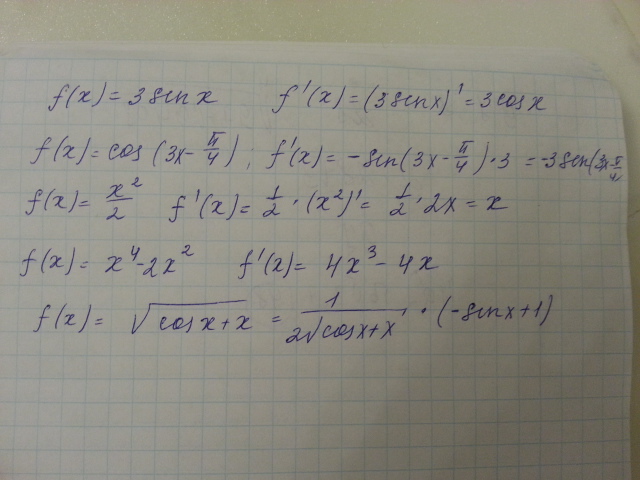 f(x) = 3 sin x f'(x) = (3 sin x)' = 3 cos x
f(x) = cos (3x - π/4); f'(x) = - sin(3x - π/4) · 3 = -3 sin(3x - π/4
f(x) = x²/2 f'(x) = 1/2 · (x²)' = 1/2 · 2x = x
f(x) = x⁴ - 2x² f'(x) = 4x³ - 4x
f(x) = √(cos x + x) = 1/(2√(cos x + x)) · (-sin x + 1)